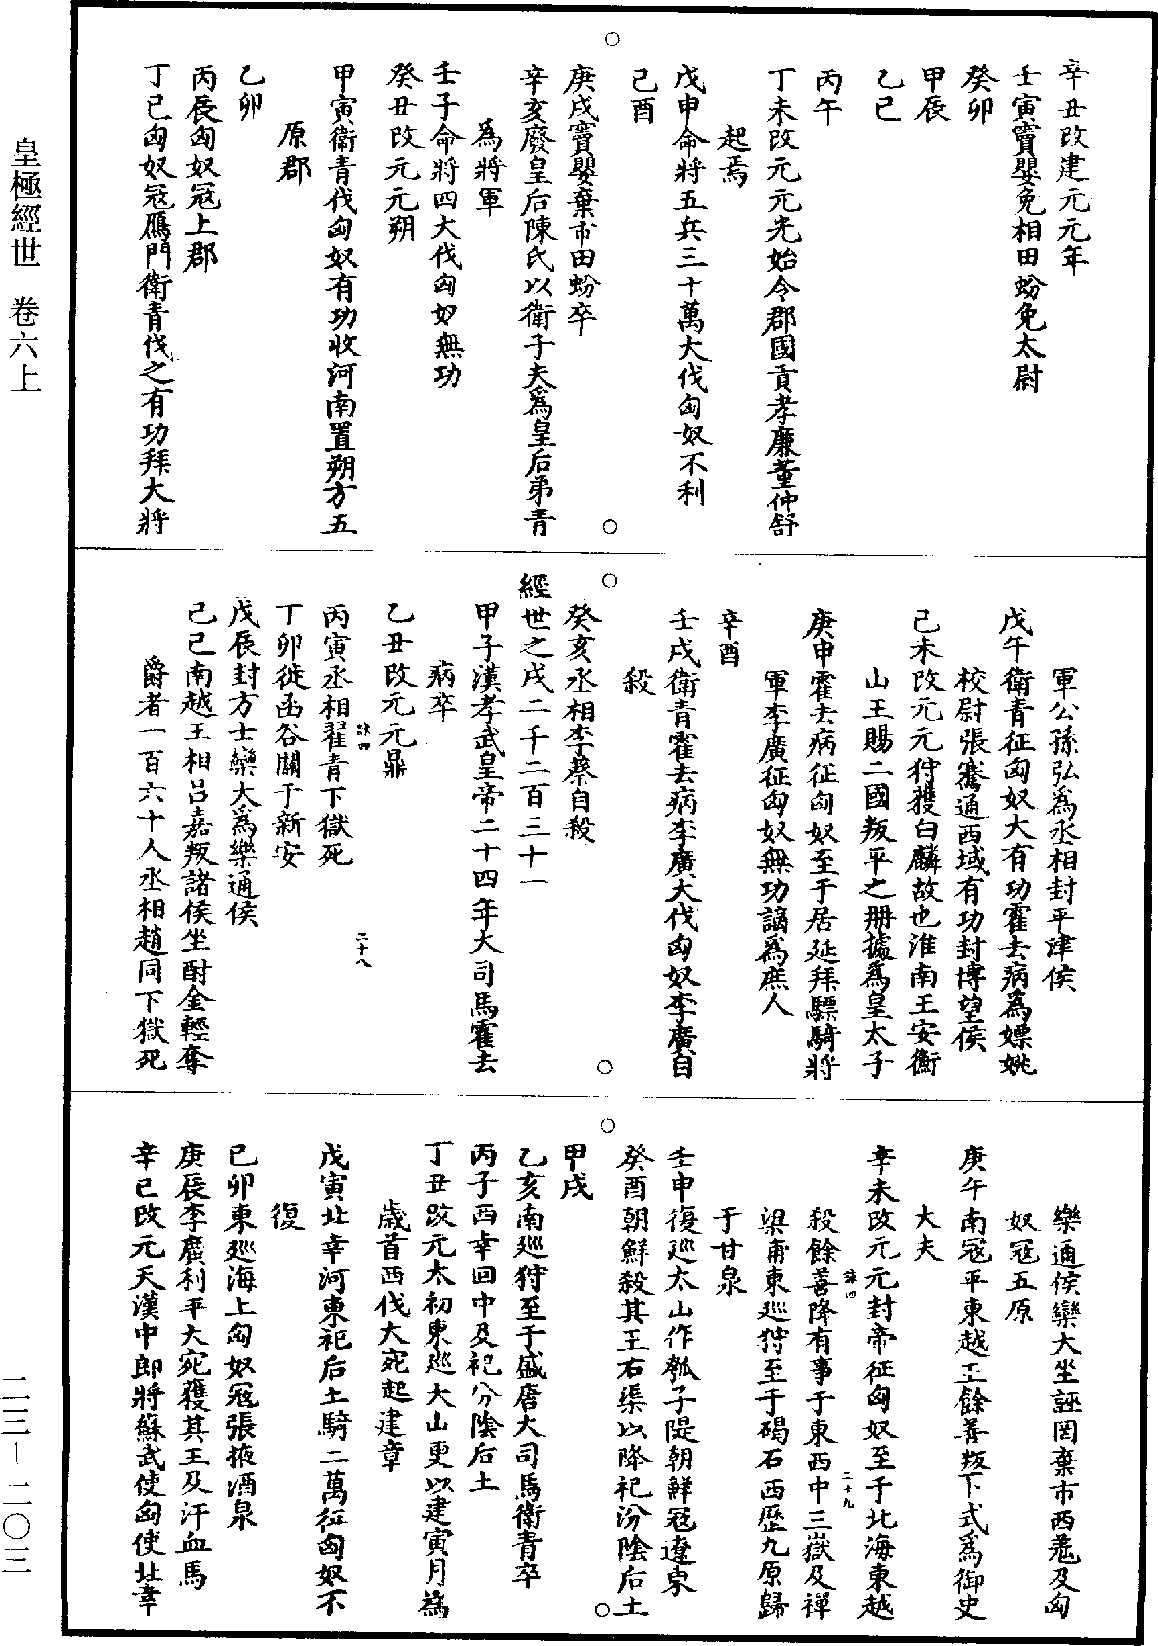 辛丑改建元元年
壬寅竇嬰免相田蚡免太尉
癸卯
甲辰
乙巳
丙午
丁未改元元光始令郡國貢孝廉董仲舒
起焉
戊申命將五兵三十萬大伐匈奴不利
己酉
庚戌竇嬰棄市田蚡卒
辛亥廢皇后陳氏以衛子夫爲皇后弟青
爲將軍
壬子命將四大伐匈奴無功
癸丑改元元朔
甲寅衛青伐匈奴有功收河南置朔方五
原郡
乙卯
丙辰匈奴寇上郡
丁巳匈奴寇鴈門衛青伐之有功拜大將
軍公孫弘爲丞相封平津侯
戊午衛青征匈奴大有功霍去病爲嫖姚
校尉張騫通西域有功封博望侯
己未改元元狩獲白麟故也淮南王安衡
山王賜二國叛平之册據爲皇太子
庚申霍去病征匈奴至于居延拜驃騎將
軍李廣征匈奴無功謫爲庶人
辛酉
壬戌衛青霍去病李廣大伐匈奴李廣自
殺
癸亥丞相李蔡自殺
經世之戌二千二百三十一
甲子漢孝武皇帝二十四年大司馬霍去
病卒
乙丑改元元鼎
丙寅丞相翟青下獄死
丁卯徙函谷關于新安
戊辰封方士欒大爲樂通侯
己巳南越王相呂嘉叛諸侯坐酎金輕奪
爵者一百六十人丞相趙同下獄死
詠四
二十八
樂通侯欒大坐誣罔棄市西羌及匈
奴寇五原
庚午南寇平東越王餘善叛下式爲御史
大夫
辛未改元元封帝征匈奴至于北海東越
殺餘善降有事于東西中三嶽及禪
梁甫東巡狩至于碣石西歷九原歸
于甘泉
壬申復巡太山作瓠子隄朝鮮寇遼東
癸酉朝鮮殺其王右渠以降祀汾陰后土
甲戌
乙亥南巡狩至于盛唐大司馬衛青卒
丙子西幸回中及祀汾陰后土
丁丑改元太初東巡大山更以建寅月爲
歲首西伐大宛起建章
戊寅北幸河東祀后土騎二萬征匈奴不
復
己卯東巡海上匈奴寇張掖酒泉
庚辰李廣利平大宛獲其王及汗血馬
辛巳改元天漢中郎將蘇武使匈使北幸
詠四
二十九
皇極經世 卷六上
二三－二〇三